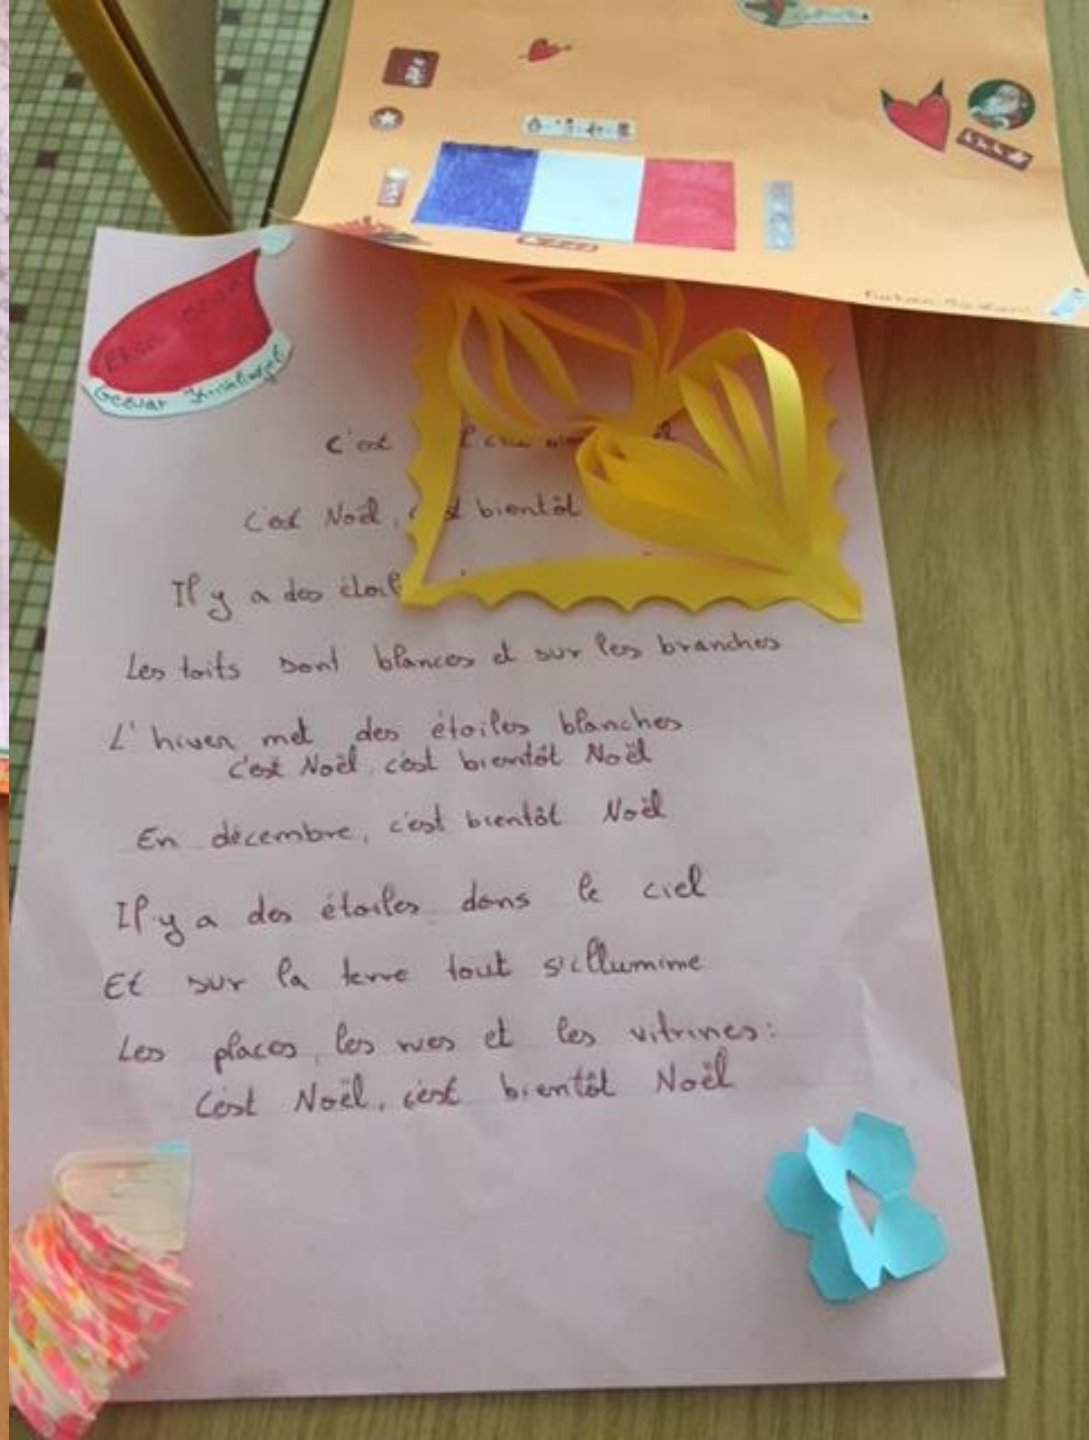 C'est
C'est Noël, bientôt
Il y a des étoil
Les toits sont blances et sur les branches
L' hiver met des étoiles blanches
c'est Noël, c'est bientôt Noël
En décembre, c'est bientôt Noël
Il y a des étoiles dans le ciel
Et sur la terre tout s'illumime
Les places, les rues et les vitrines:
C'est Noël, c'est bientôt Noël